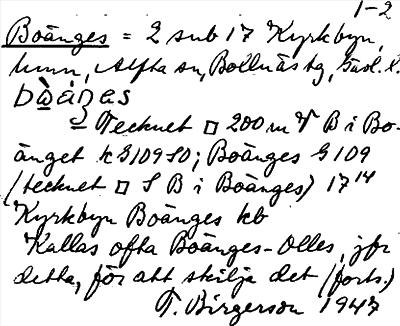 1-2
Boänges = 2 sub 17 Kyrkbyn,
hmn, Alfta sn, Bollnäs tg, Gävl. l.
Tecknet □ 200 m V B i Bo-
änget k G109 SO; Boänges G 109
(tecknet □ S B i Boänges) 17 14
Kyrkbyn Boänges kb
Kallas ofta Boänges-Olles, jfr
detta, för att skilja det (forts.)
T. Birgerson 1947